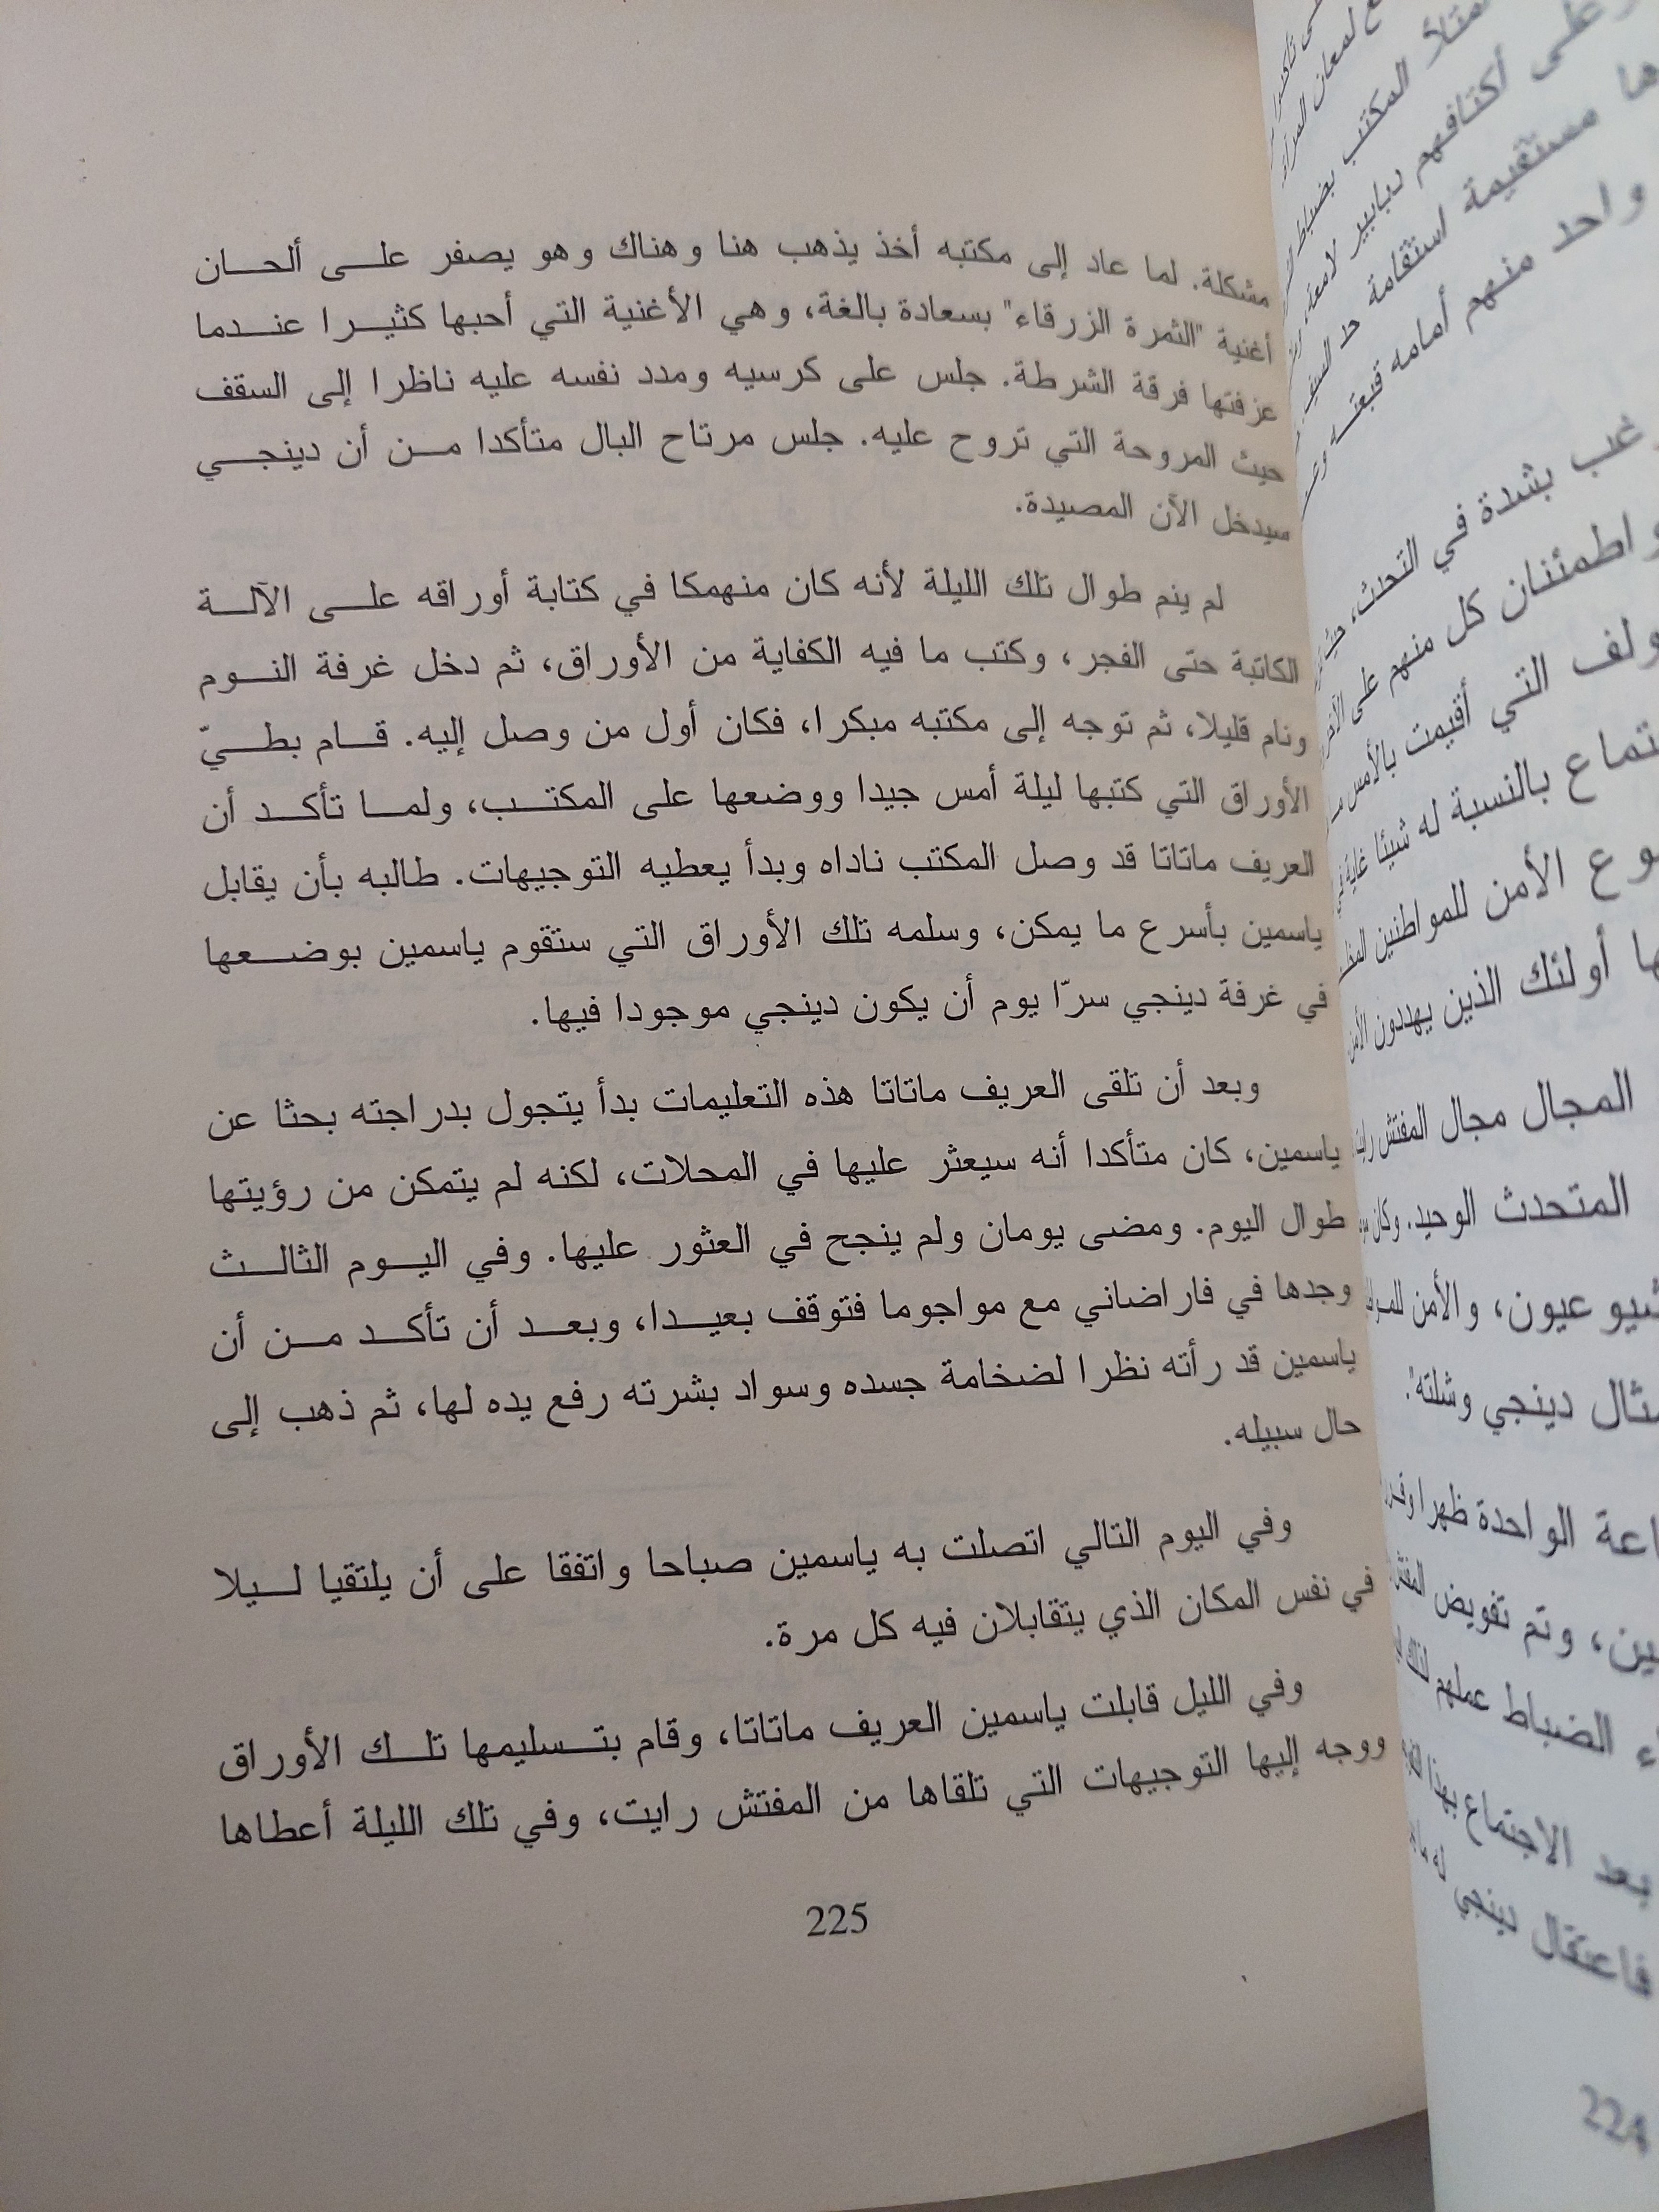 مشكلة. لما عاد إلى مكتبه أخذ يذهب هنا وهناك وهو يصفر على ألحان
أغنية "الثمرة الزرقاء" بسعادة بالغة، وهي الأغنية التي أحبها كثيرا عندما
عزفتها فرقة الشرطة. جلس على كرسيه ومدد نفسه عليه ناظرا إلى السقف
حيث المروحة التي تروح عليه. جلس مرتاح البال متأكدا من أن دينجي
سيدخل الآن المصيدة.
لم ينم طوال تلك الليلة لأنه كان منهمكا في كتابة أوراقه على الآلة
الكاتبة حتى الفجر، وكتب ما فيه الكفاية من الأوراق، ثم دخل غرفة النوم
ونام قليلا، ثم توجه إلى مكتبه مبكرا، فكان أول من وصل إليه. قام بطيّ
الأوراق التي كتبها ليلة أمس جيدا ووضعها على المكتب، ولما تأكد أن
العريف ماتاتا قد وصل المكتب ناداه وبدأ يعطيه التوجيهات. طالبه بأن يقابل
ياسمين بأسرع ما يمكن، وسلمه تلك الأوراق التي ستقوم ياسمين بوضعها
في غرفة دينجي سرّا يوم أن يكون دينجي موجودا فيها.
وبعد أن تلقى العريف ماتاتا هذه التعليمات بدأ يتجول بدراجته بحثا عن
ياسمين، كان متأكدا أنه سيعثر عليها في المحلات، لكنه لم يتمكن من رؤيتها
طوال اليوم. ومضى يومان ولم ينجح في العثور عليها. وفي اليوم الثالث
وجدها في فاراضاني مع مواجوما فتوقف بعيدا، وبعد أن تأكد من أن
ياسمين قد رأته نظرا لضخامة جسده وسواد بشرته رفع يده لها، ثم ذهب إلى
حال سبيله.
وفي اليوم التالي اتصلت به ياسمين صباحا واتفقا على أن يلتقيا ليلا
في نفس المكان الذي يتقابلان فيه كل مرة.
وفي الليل قابلت ياسمين العريف ماتاتا، وقام بتسليمها تلك الأوراق
ووجه إليها التوجيهات التي تلقاها من المفتش رايت، وفي تلك الليلة أعطاها
225
المكتب
على أكتافهم دبابير لامعة
مستقيمة استقامة حد السيف
واحد منهم أمامه قبعته
بشدة في التحدث،
واطمئنان كل منهم على
التي أقيمت بالأمس
بالنسبة له شيئا
الأمن للمواطنين
أولئك الذين يهددون
المجال مجال المفتش
المتحدث الوحيد. وكان
عيون، والأمن
دينجي وشلته".
الواحدة ظهرا
وتم تفويض
الضباط عملهم
بعد الاجتماع بهذا
فاعتقال دينجي
224